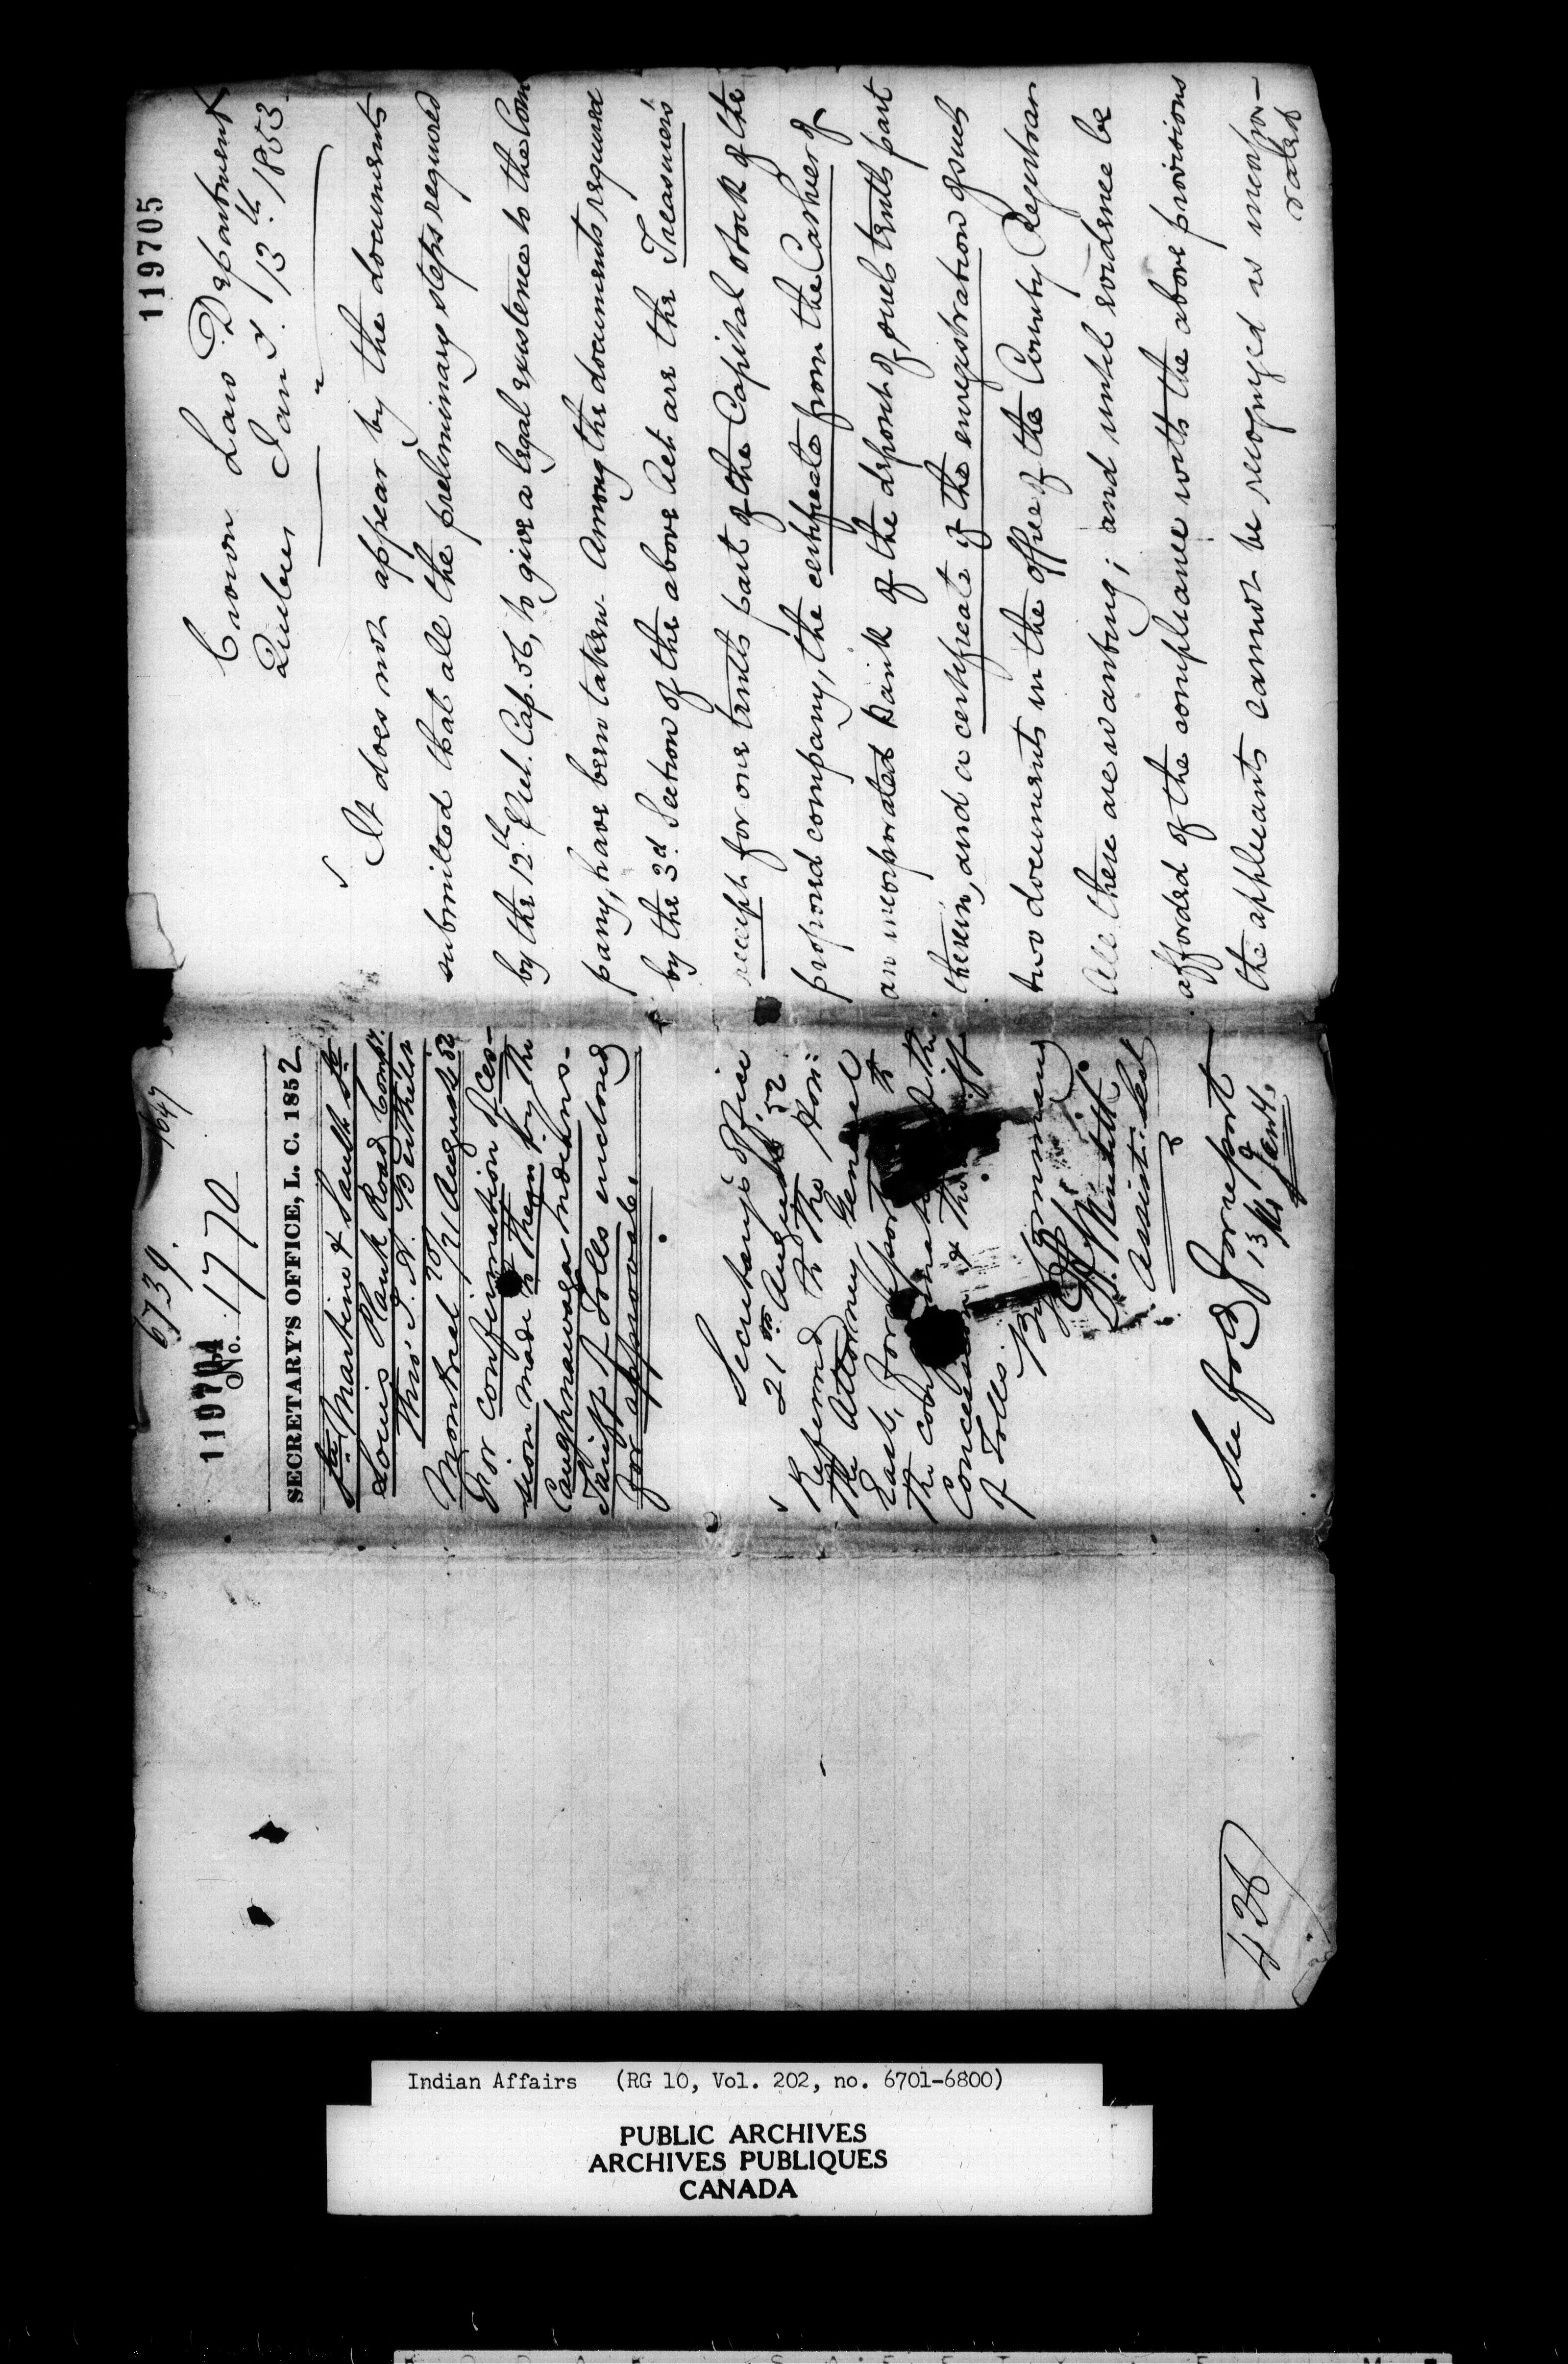 119705
Crown Law Department
Quebec Jany. 13th 1853
It does not appear by the documents
submitted that all the preliminary steps required
by the 12th Vict. Cap. 56, to give a legal existence to the Com
pany, have been taken. Among the documents required
by the 3d Section of the above Act are the Treasurer's
receipt for one tenth part of the Capital stock of the
proposed company, the certificate from the Cashier of
an incorporated Bank of the deposit of such tenth part
therein, and a certificate of the enregistration of such
two documents in the office of the County Registrar
All these are wanting; and until evidence be
afforded of the compliance with the above provisions
the applicants cannot be recognized as incorpo-
rated
6739.
1647
119704
No. 1770
SECRETARY'S OFFICE, L. C. 1852
Ste Martine & Sault St.
Louis Plank Road Compy.
Thro' J. A. Berthelot
Montreal 20/21 August 52
For confirmation of ces-
sion made to them by the
Caughnawaga Indians-
Tariff of Tolls enclosed
for approval.
Secretary's Office
21st August 52
Referred to the Hon:
the Attorney General
East, for report
the
Concession & the
of Tolls.
By Command
E. A. Meredith
Assist: Sec
See fo. 3 for report
13 Jany.
436
Indian Affairs (RG 10, Vol. 202, no. 6701-6800)
PUBLIC ARCHIVES
ARCHIVES PUBLIQUES
CANADA